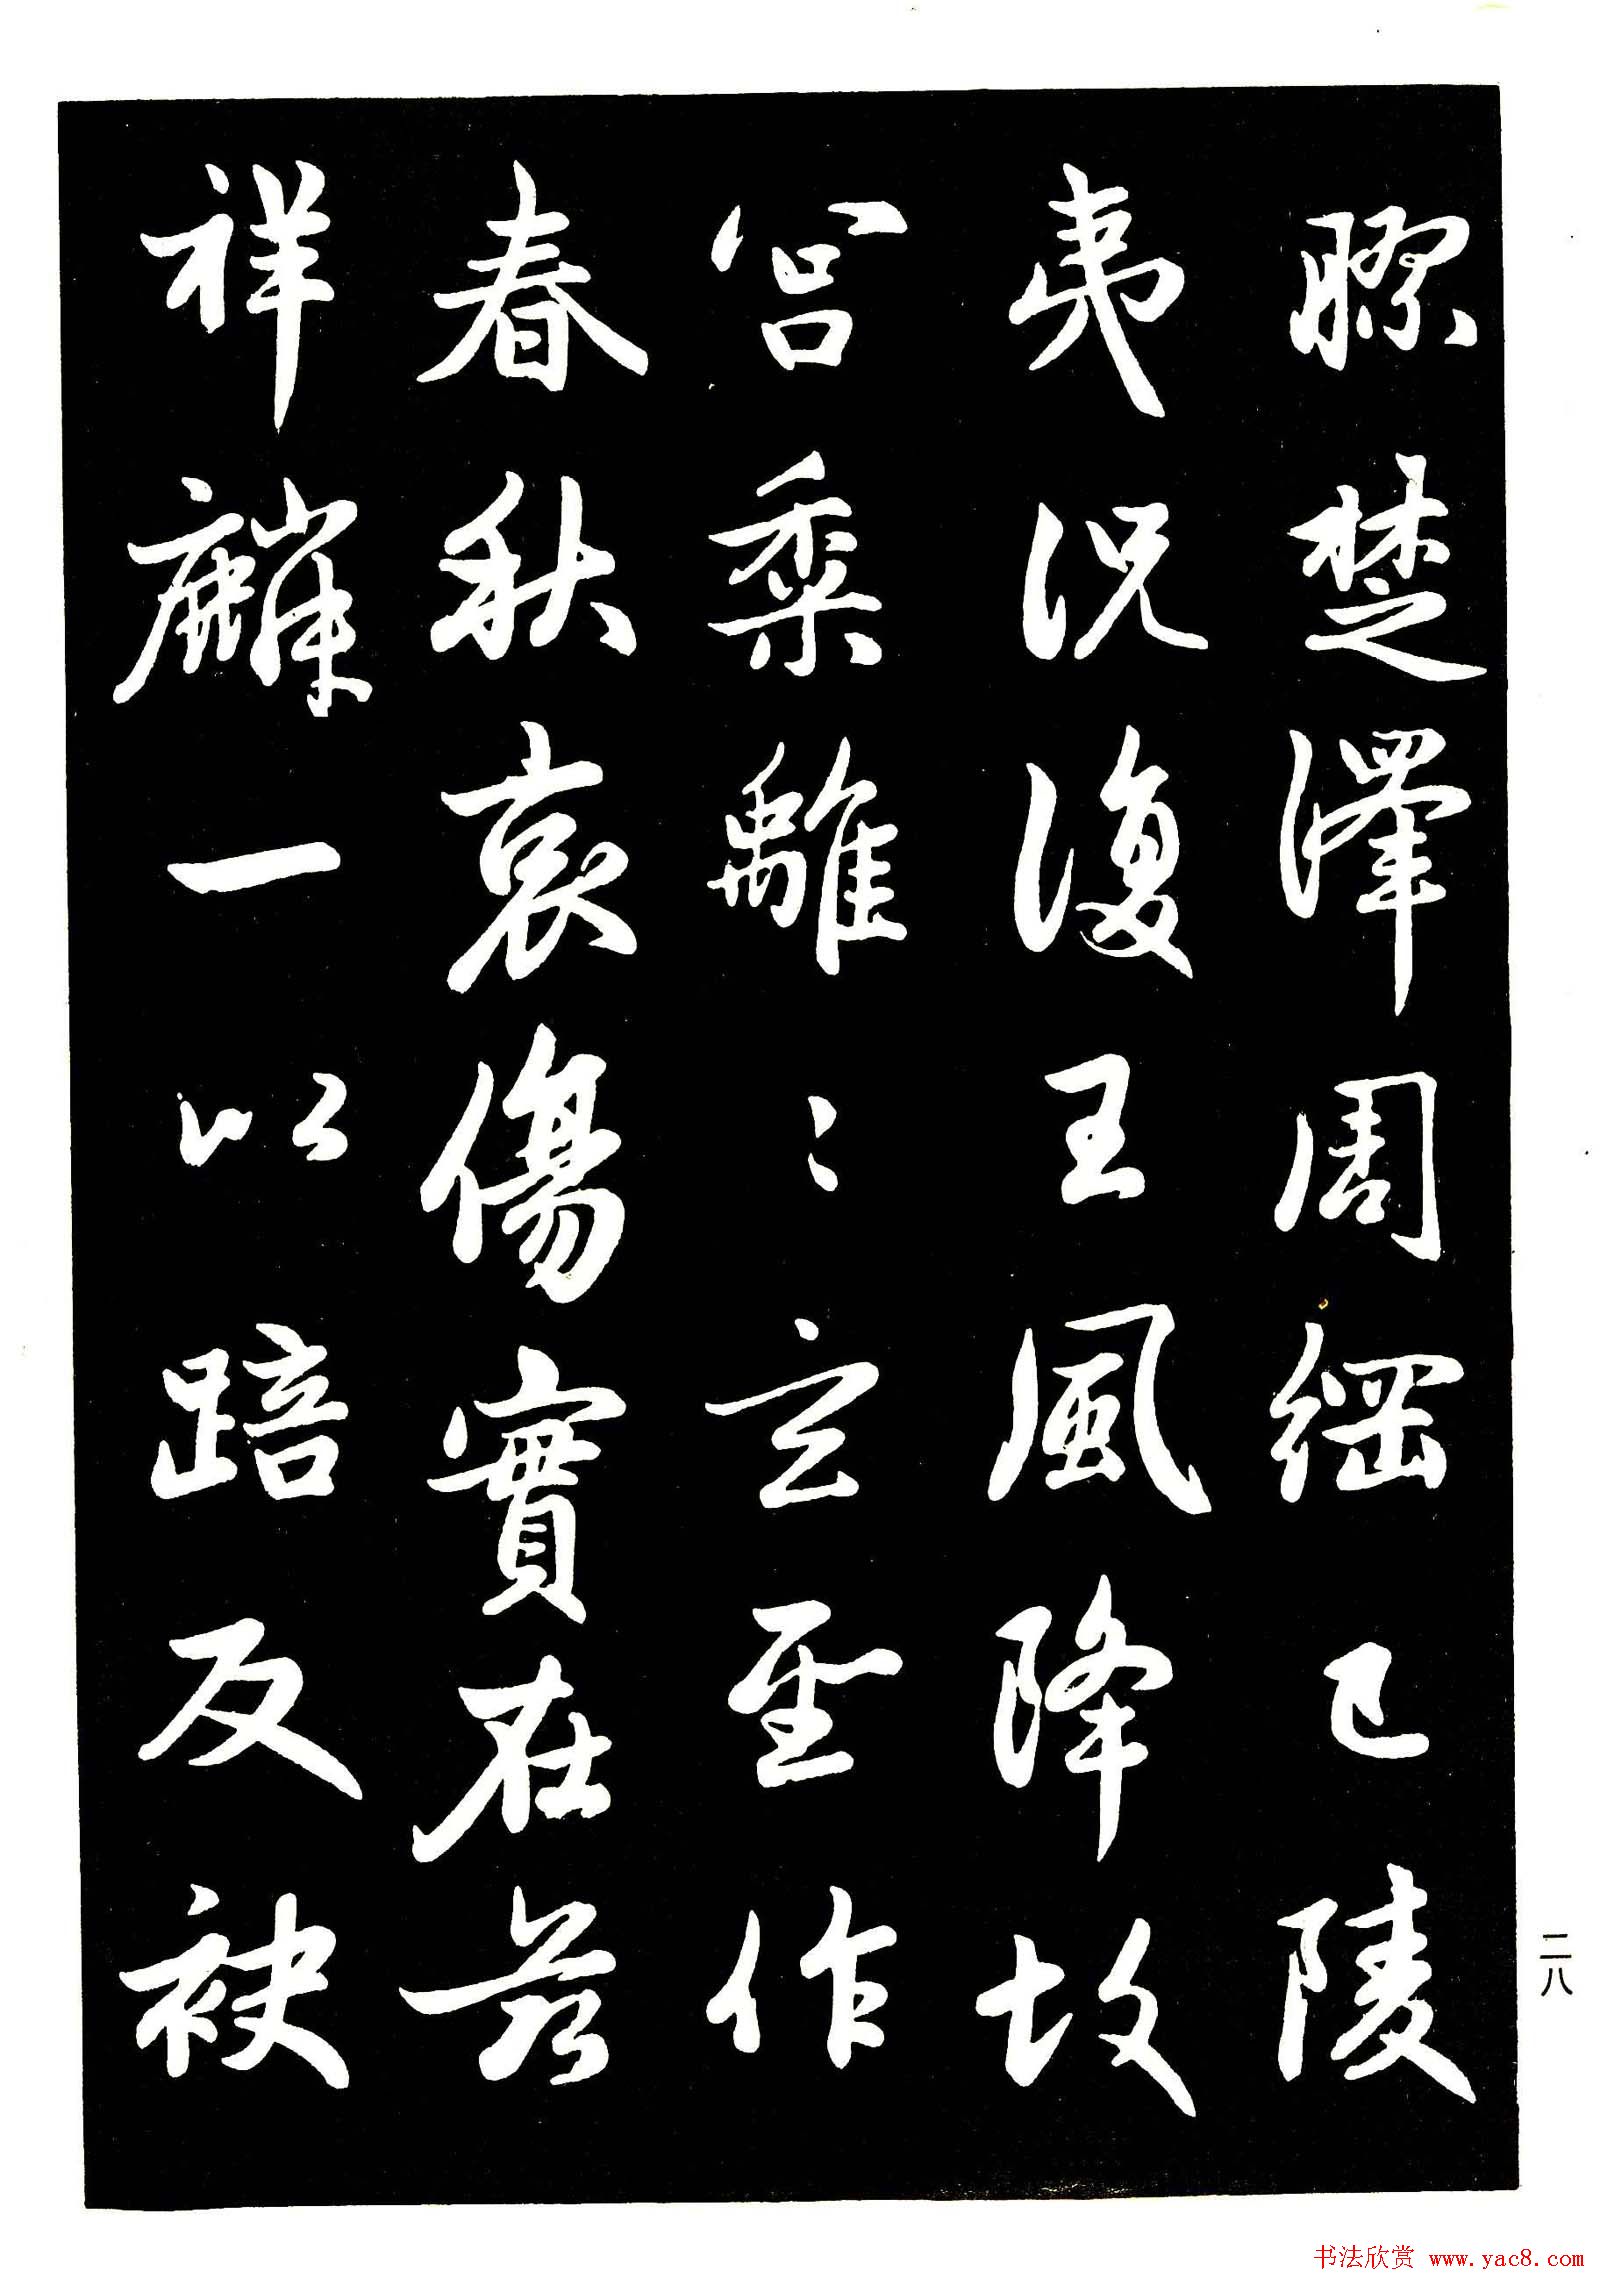 膠楚澤周綱已陵
夷況復王風降故
宮黍離〻玄聖作
春秋哀傷實在茲
祥麟一以踣反袂
二八
书法欣赏 www.yac8.com